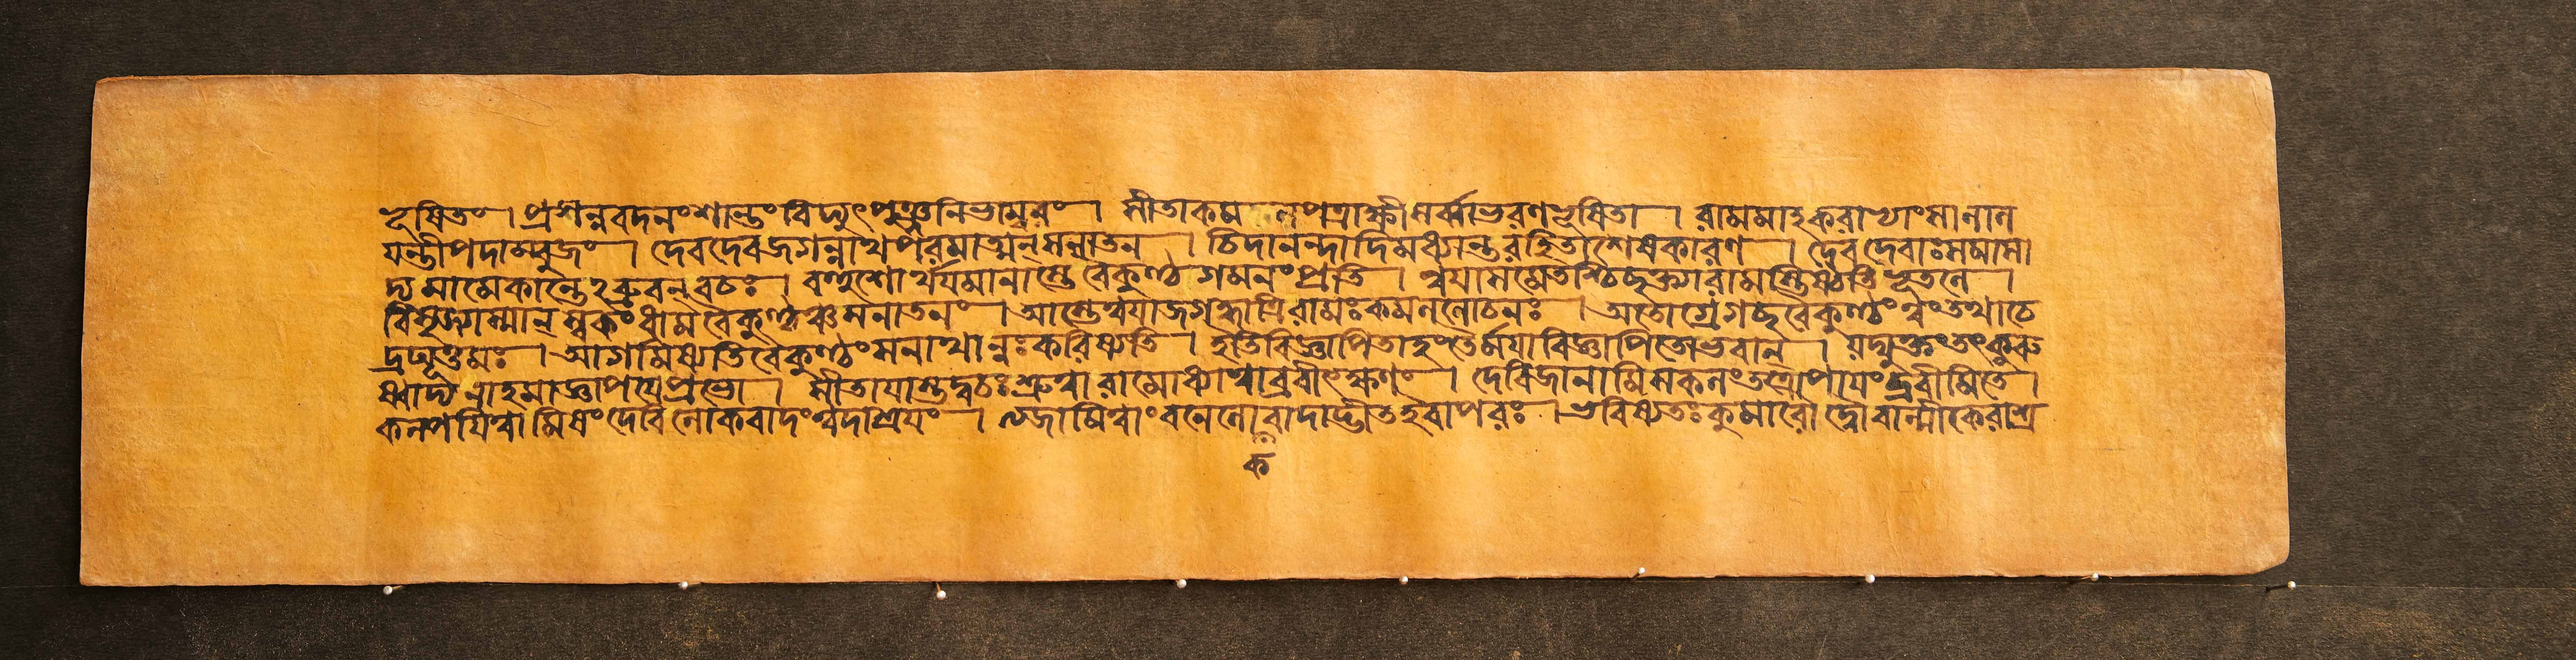 ভূষিতং । প্রসন্নবদনং শান্তং বিদ্যুৎপুঞ্জনিভাম্বরং । সীতা কমলপত্রাক্ষী সর্ব্বাভরণভূষিতা । রামমাহ করাভ্যাং সা লাল
যন্তী পদাম্বুজং । দেবদেব জগন্নাথ পরমাত্মন্ সনাতন । চিদানন্দাদিমধ্যান্তরহিতাশেষকারণ । দেব দেবাঃ সমাসা
দ্য মামেকান্তেঽব্রুবন্ বচঃ । বহুশোর্থয়মানাস্তে বৈকুণ্ঠগমনং প্রতি । ত্বয়া সমেতশ্চিচ্ছক্ত্যা রামস্তিষ্ঠতি ভূতলে ।
বিসৃজ্যাস্মান্ স্বকং ধাম বৈকুণ্ঠঞ্চ সনাতনং । আস্তে ত্বয়া জগদ্ধাত্রি রামঃ কমললোচনঃ । অতোগ্রে গচ্ছ বৈকুণ্ঠং ত্বং তথা চে
দ্রঘূত্তমঃ । আগমিষ্যতি বৈকুণ্ঠং সনাথান্নঃ করিষ্যতি । ইতি বিজ্ঞাপিতাহং তৈর্ময়া বিজ্ঞাপিতো ভবান্ । যদ্যুক্তং তৎ কুরু
ষ্বাদ্য নাহমাজ্ঞাপয়ে প্রভো । সীতায়াস্তদ্বচঃ শ্রুত্বা রামো ধ্যাত্বাব্রবীৎক্ষণং । দেবি জানামি সকলং তত্রোপায়ং ব্রবীমি তে ।
কল্পয়িত্বা মিষং দেবি লোকবাদং ত্বদাশ্রয়ং । ত্যজামি ত্বাং বনে লোবাদাদ্ভীত ইবাপরঃ । ভবিষ্যতঃ কুমারৌ দ্বৌ বাল্মীকেরাশ্র
ক